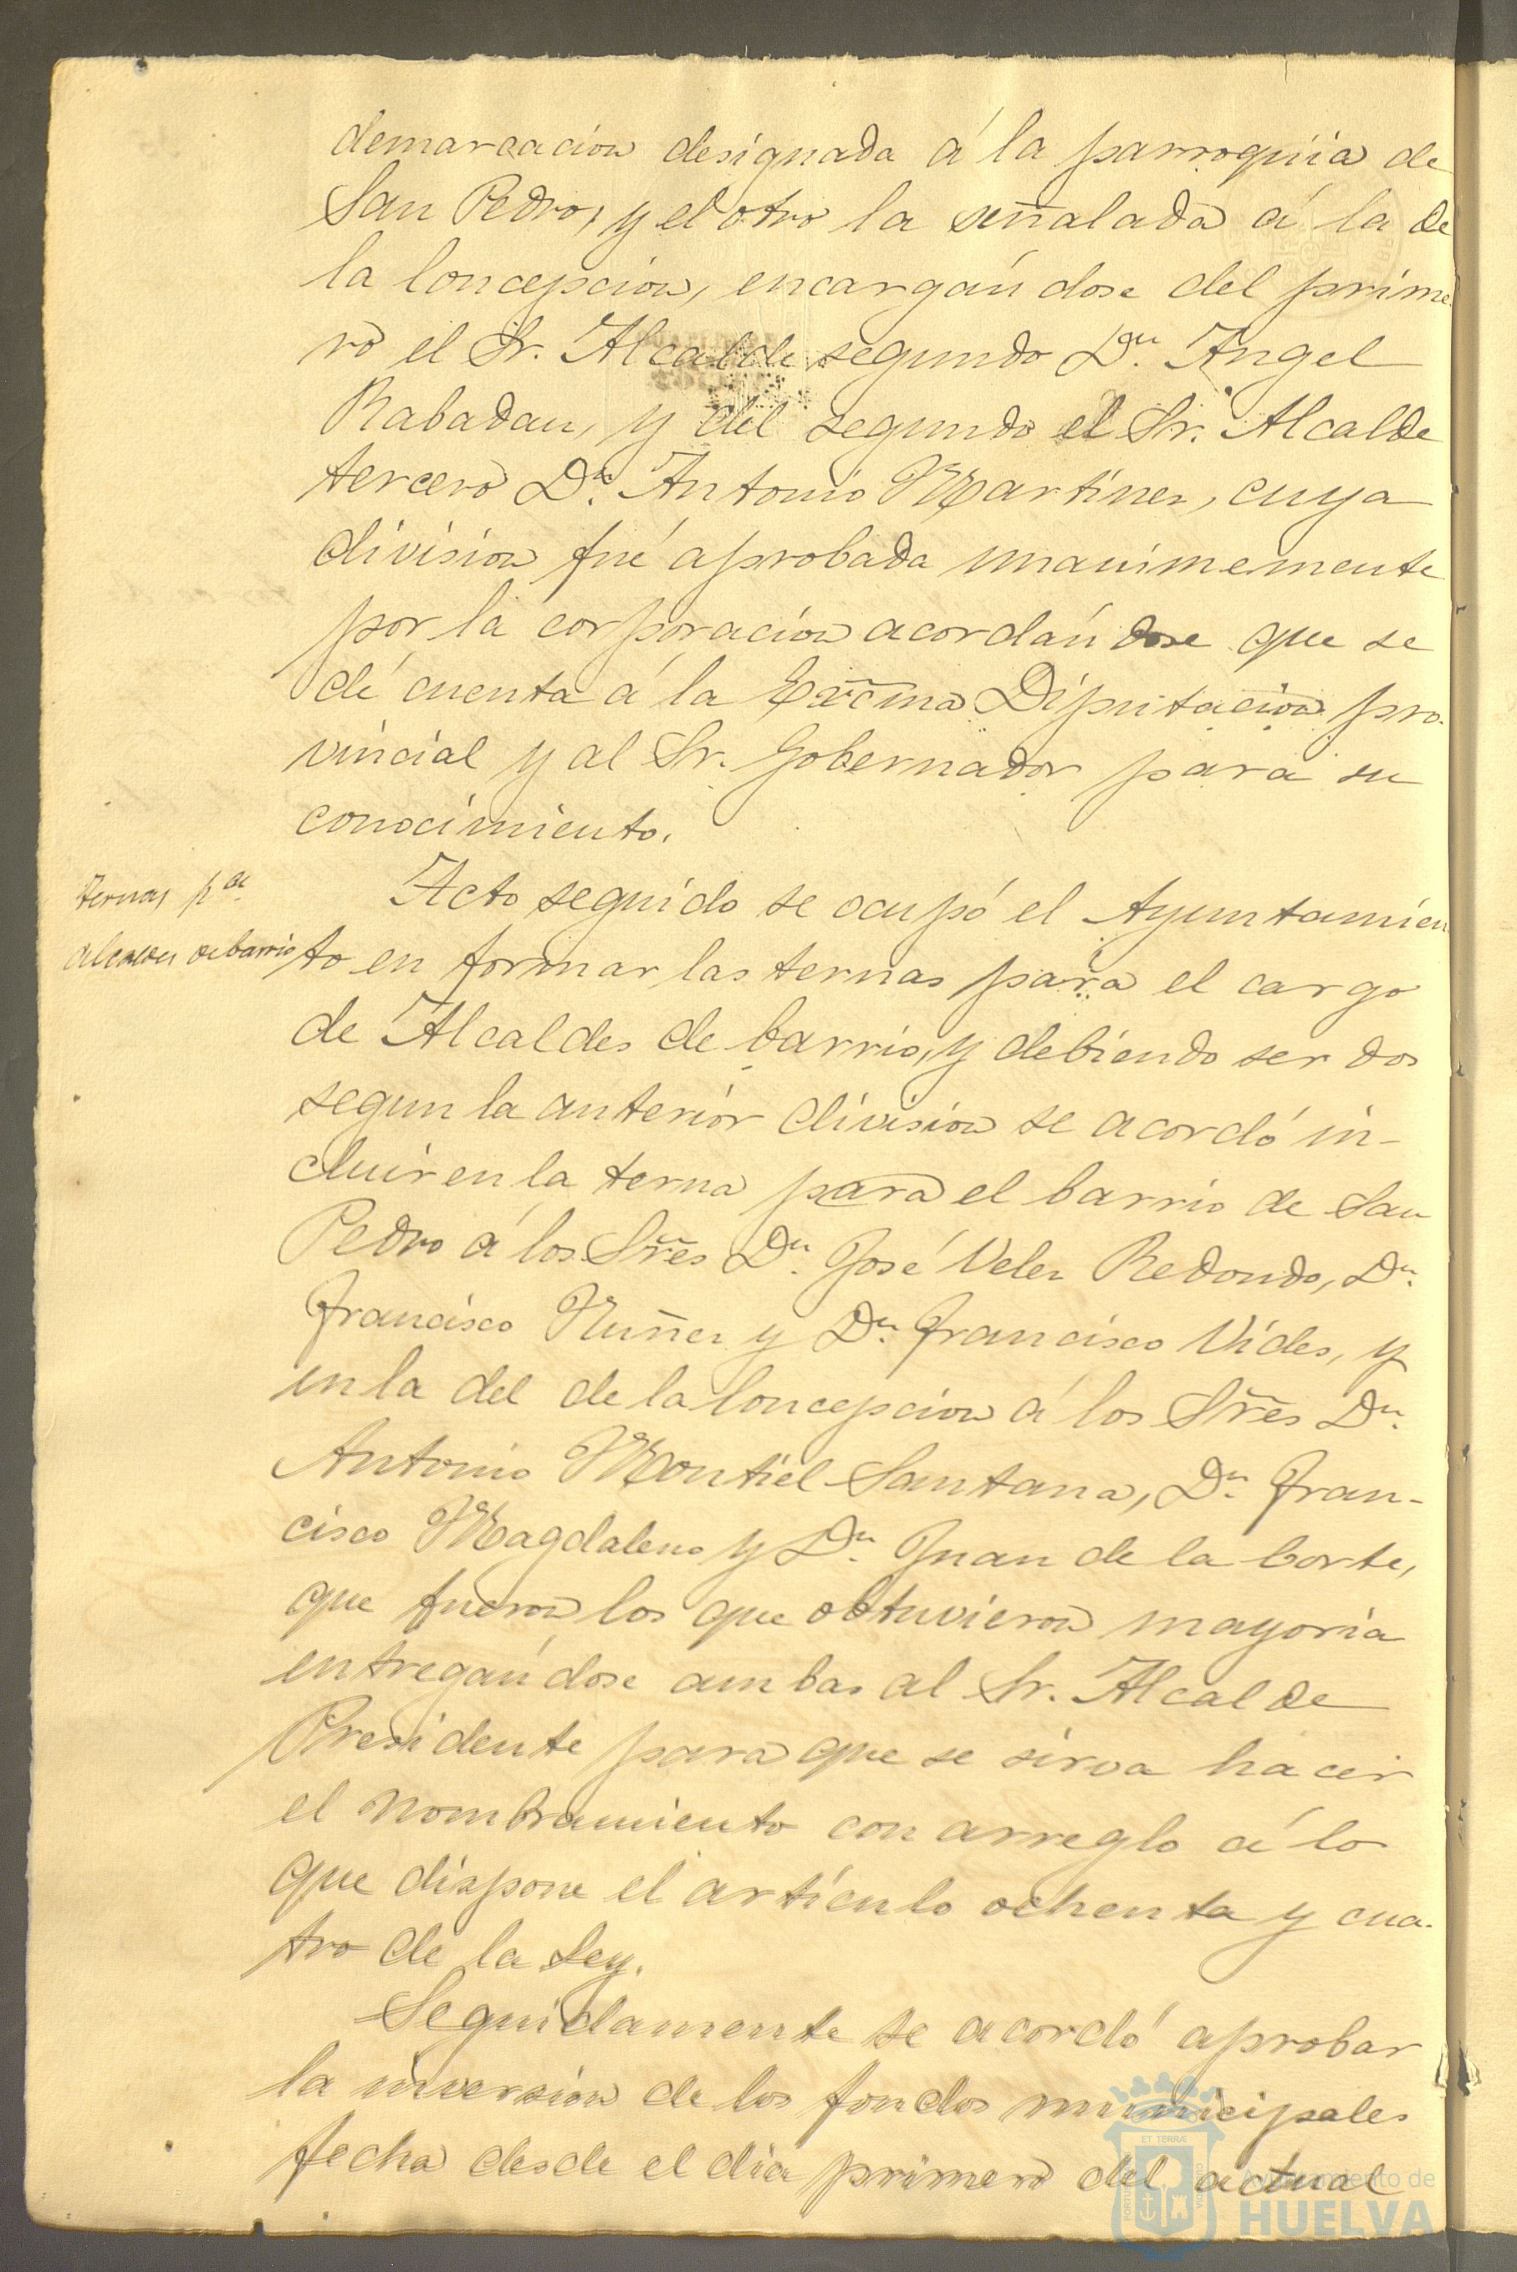 demarcacion designada á la parroquia de
San Pedro, y el otro la señalada á la de
la Concepcion, encargándose del prime-
ro el Sr. Alcalde segundo Dn. Angel
Rabadan, y del segundo el Sr. Alcalde
tercero Dn. Antonio Martinez, cuya
division fué aprobada unanimemente
por la corporacion acordándose que se
dé cuenta á la Excma Diputacion pro-
vincial y al Sr. Gobernador para su
conocimiento.
ternas pa.
alcaldes de barrio
Acto seguido se ocupó el Ayuntamien
to en formar las ternas para el cargo
de Alcaldes de barrio, y debiendo ser dos
segun la anterior division se acordó in-
cluir en la terna para el barrio de San
Pedro á los Sres Dn. José Velez Redondo, Dn.
Francisco Nuñez y Dn. Francisco Vides, y
en la del de la Concepcion á los Sres Dn.
Antonio Montiel Santana, Dn. Fran-
cisco Magdaleno y Dn. Juan de la Corte,
que fueron los que obtuvieron mayoria
entregándose ambas al Sr. Alcalde
Presidente para que se sirva hacer
el nombramiento con arreglo á lo
que dispone el artículo ochenta y cua-
tro de la Ley.
Seguidamente se acordó aprobar
la inversion de los fondos municipales
fecha desde el dia primero del actual
ET TERRÆ
Ayuntamiento de
HUELVA